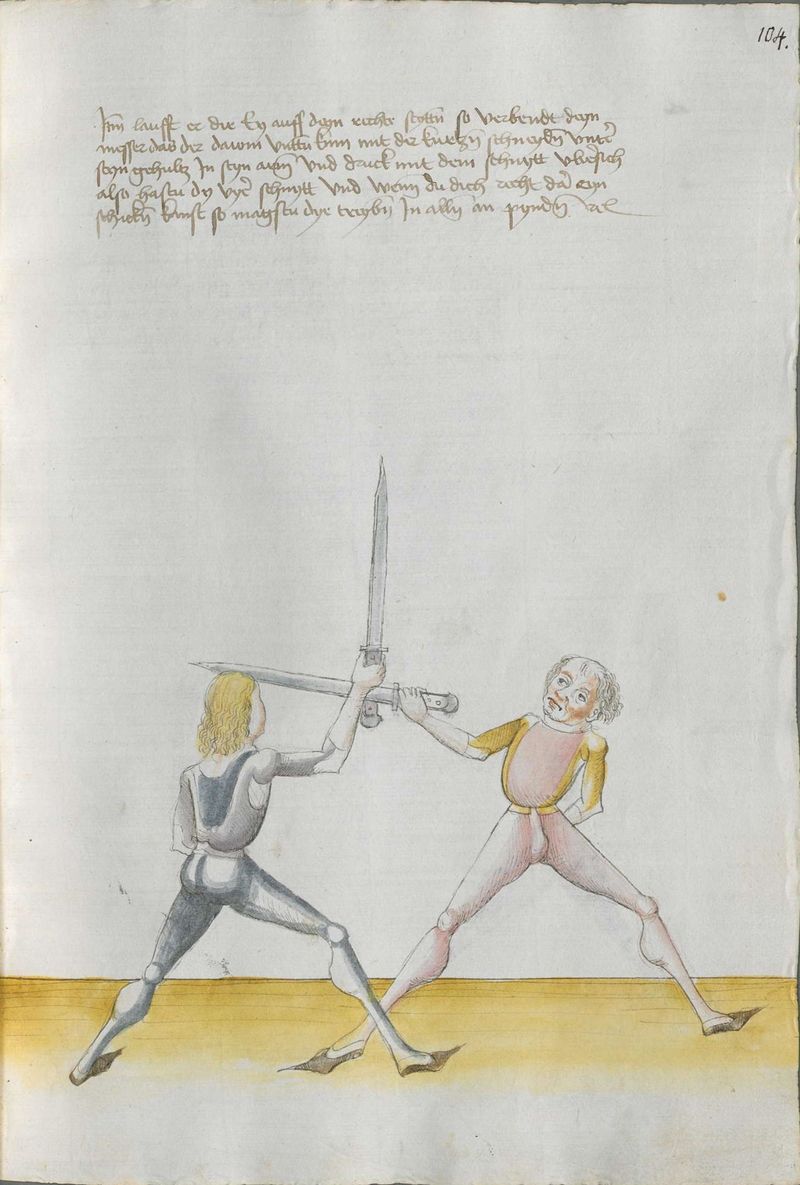 104.
Itm laufft er dir Ey auff deyn rechte seyttn so verbendt deyn
messer das der dawm untn kum mit der kurczn schneydn unter
seyn gehultz In seyn arm und druck mit dem schnytt ubersich
also hastu dy vyer schnytt und wenn du dich recht dar eyn
schicken kanst so magstu dye treybn In allen an